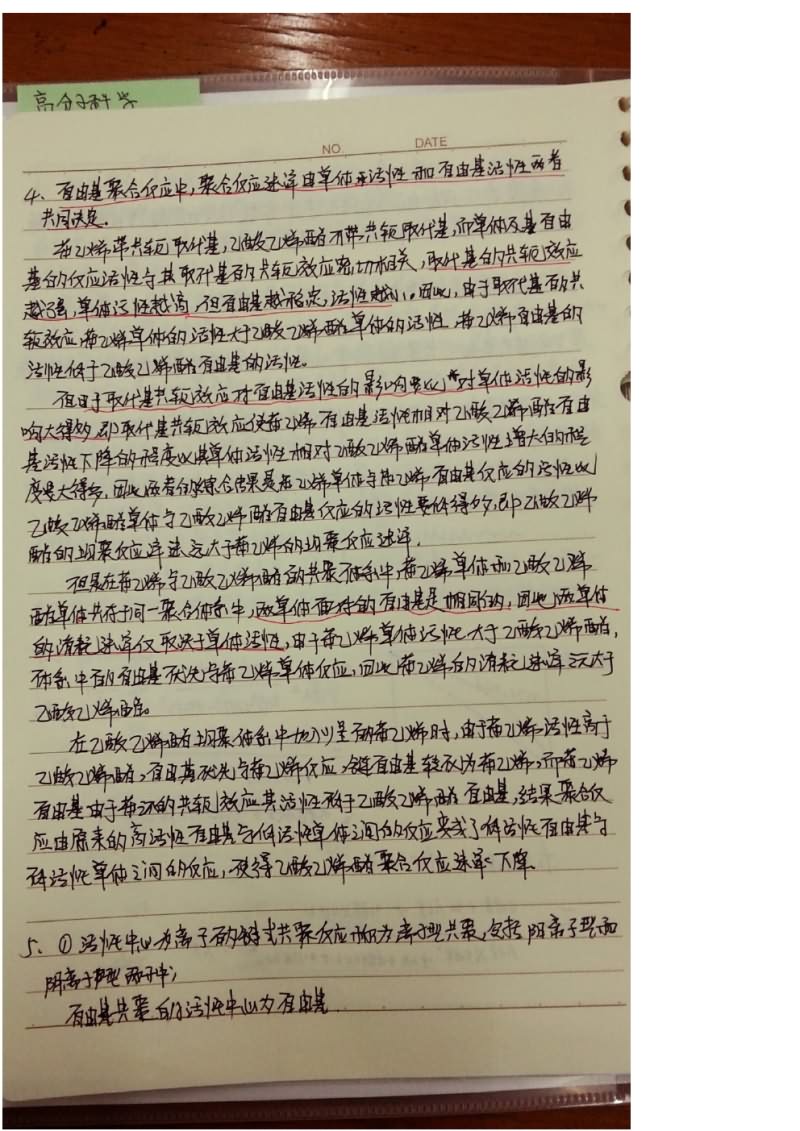 高分子科学
NO. DATE
4、自由基聚合反应中，聚合反应速率由单体活性和自由基活性两者
共同决定。
苯乙烯带共轭取代基，乙酸乙烯酯不带共轭取代基，而单体及其自由
基的反应活性与其取代基的共轭效应密切相关，取代基的共轭效应
越强，单体活性越高，但自由基越稳定，活性越小。因此，由于取代基的共
轭效应，苯乙烯单体的活性大于乙酸乙烯酯单体的活性，苯乙烯自由基的
活性低于乙酸乙烯酯自由基的活性。
但由于取代基共轭效应对自由基活性的影响要比对单体活性的影
响大得多，即取代基共轭效应使苯乙烯自由基活性相对乙酸乙烯酯自由
基活性下降的程度比其单体活性相对乙酸乙烯酯单体活性增大的程
度要大得多，因此两者的综合结果是苯乙烯单体与苯乙烯自由基反应的活性比
乙酸乙烯酯单体与乙酸乙烯酯自由基反应的活性要低得多，即乙酸乙烯
酯的均聚反应速率远大于苯乙烯的均聚反应速率。
但是在苯乙烯与乙酸乙烯酯的共聚体系中，苯乙烯单体和乙酸乙烯
酯单体共存于同一聚合体系中，两单体面对的自由基是相同的，因此两单体
的消耗速率仅取决于单体活性，由于苯乙烯单体活性大于乙酸乙烯酯，
体系中的自由基优先与苯乙烯单体反应，因此苯乙烯的消耗速率远大于
乙酸乙烯酯。
在乙酸乙烯酯均聚体系中加入少量的苯乙烯时，由于苯乙烯活性高于
乙酸乙烯酯，自由基优先与苯乙烯反应，链自由基转化为苯乙烯，而苯乙烯
自由基由于苯环的共轭效应其活性低于乙酸乙烯酯自由基，结果聚合反
应由原来的高活性自由基与低活性单体之间的反应变成了低活性自由基与
低活性单体之间的反应，使得乙酸乙烯酯聚合反应速率下降。
5、①活性中心为离子的链式共聚反应称为离子型共聚，包括阴离子型和
阳离子型两种；
自由基共聚的活性中心为自由基